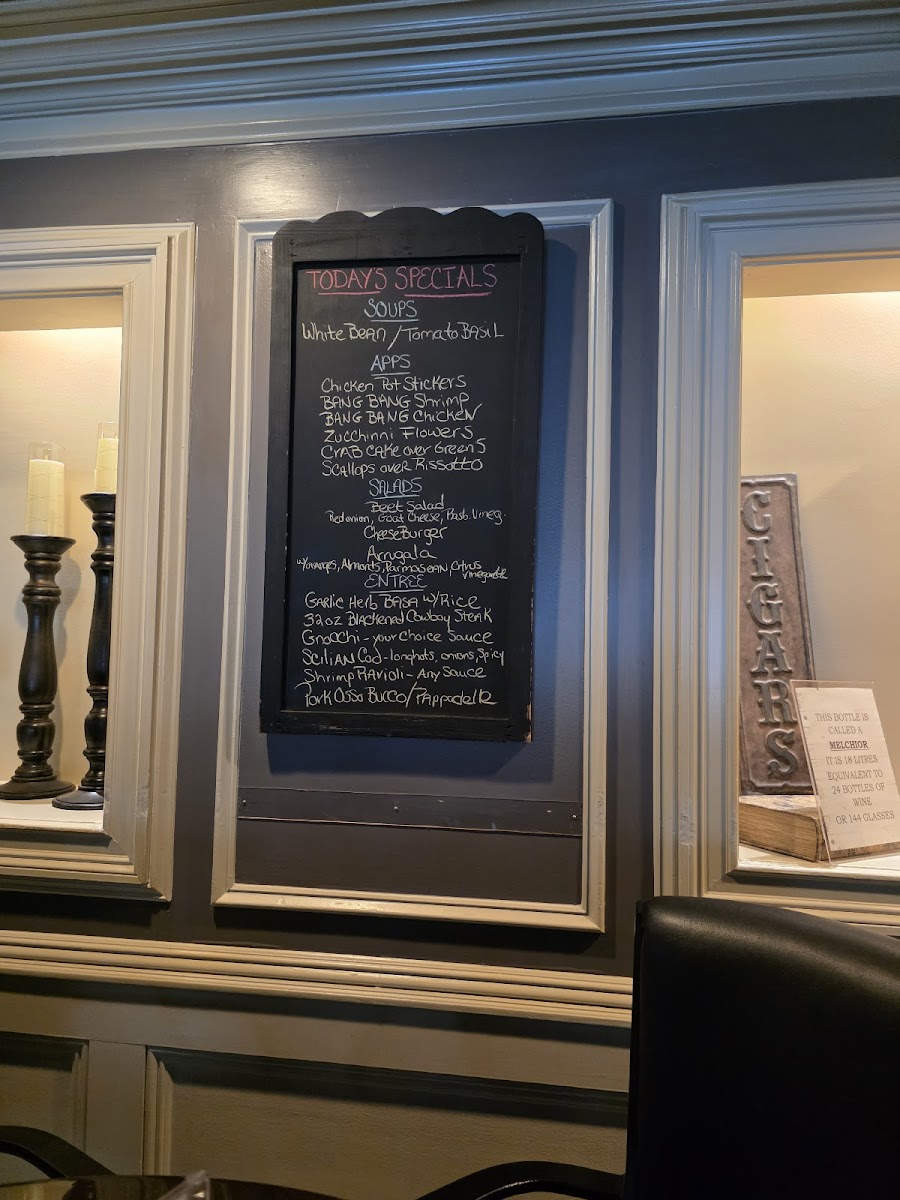 TODAY'S SPECIALS
SOUPS
White Bean / Tomato BASIL
APPS
Chicken Pot Stickers
BANG BANG Shrimp
BANG BANG Chicken
Zucchinni Flowers
CRAB CAKE over Greens
Scallops over Rissotto
SALADS
Beet Salad
Red onion, Goat Cheese, Rasb. Vineg.
CheeseBurger
Arrugala
w/oranges, Almonds, Parmasean, Citrus
Vinegarette
ENTREE
Garlic Herb BASA w/ Rice
32oz Blackened Cowboy Steak
Gnocchi - your choice Sauce
Scilian Cod - longhots, onions, Spicy
Shrimp Ravioli - Any Sauce
Pork Osso Bucco / Pappadelle
CIGARS
THIS BOTTLE IS
CALLED A
MELCHIOR
IT IS 18 LITRES
EQUIVALENT TO
24 BOTTLES OF
WINE
OR 144 GLASSES